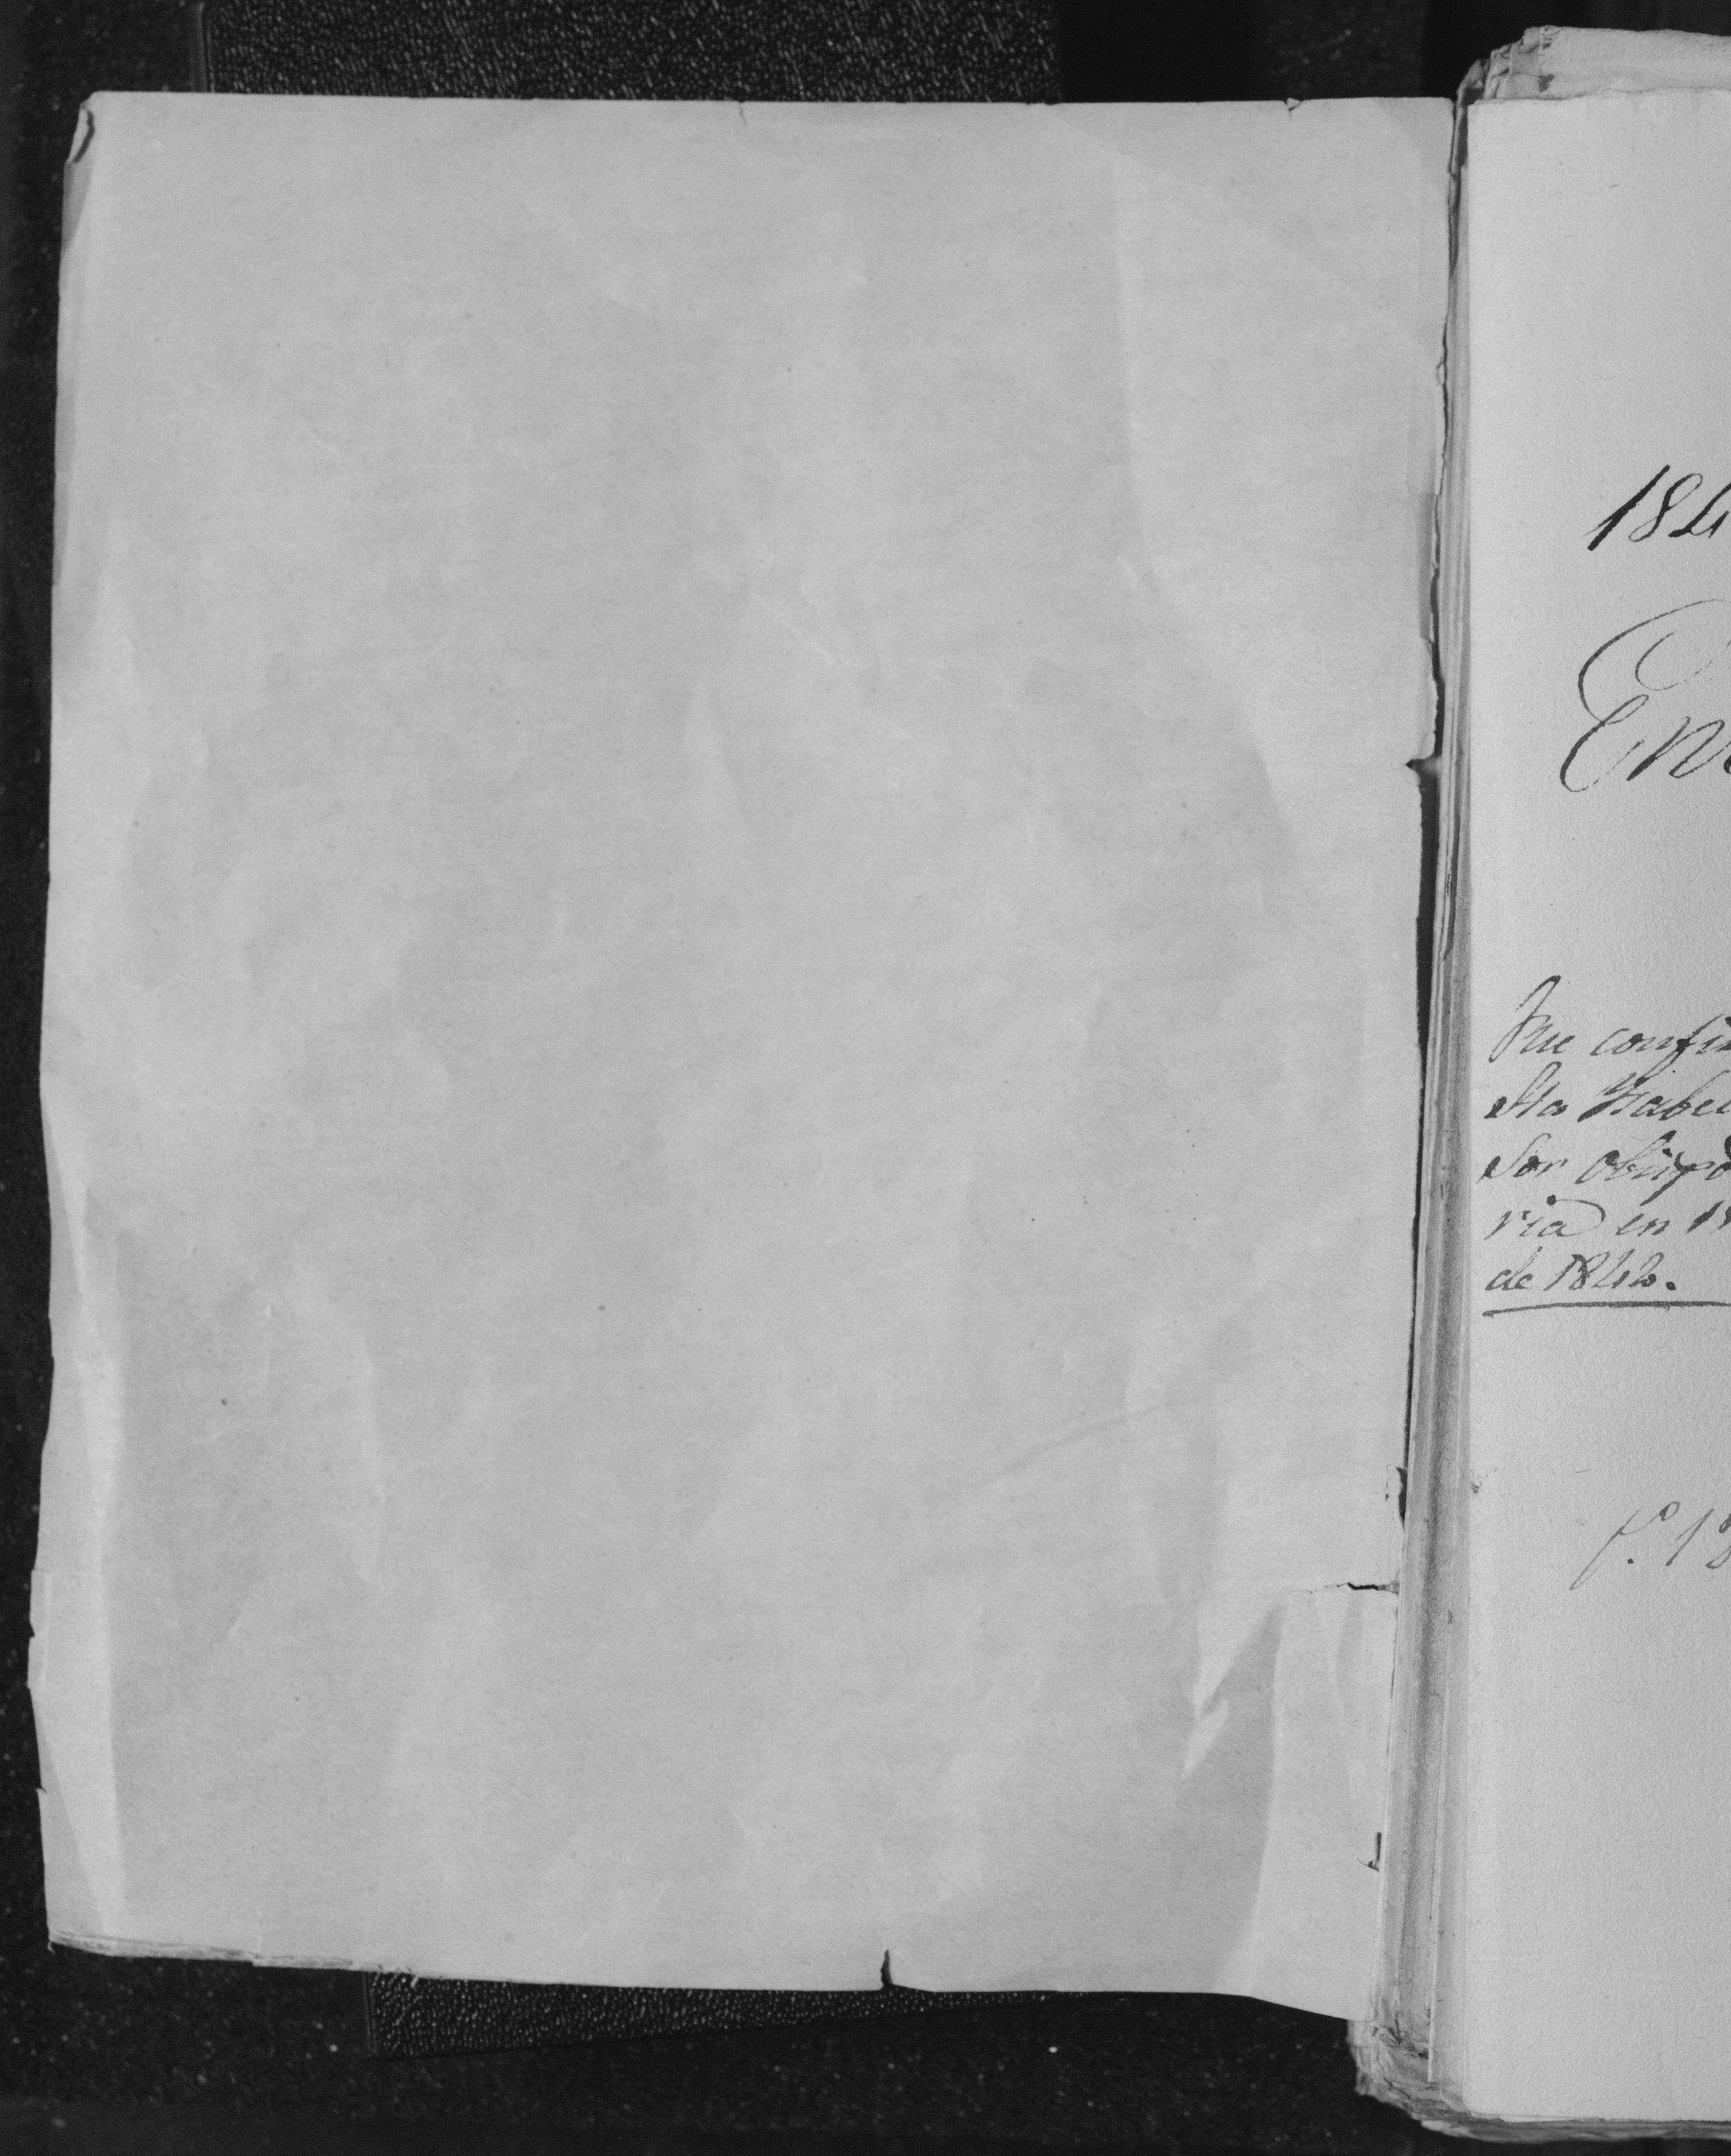 184
Ene
Fue confir
sta Ysabel
Sor obispo
ria en 1
de 1842.
f.º 18